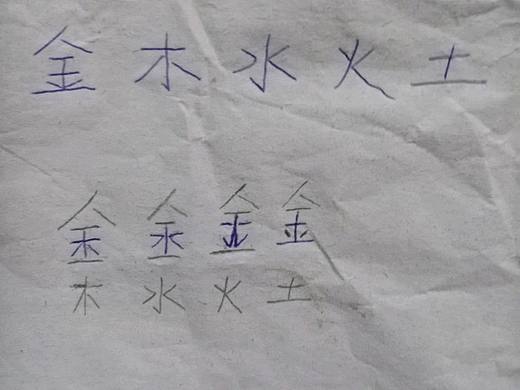 金 木 水 火 土
金 金 金 金
木 水 火 土